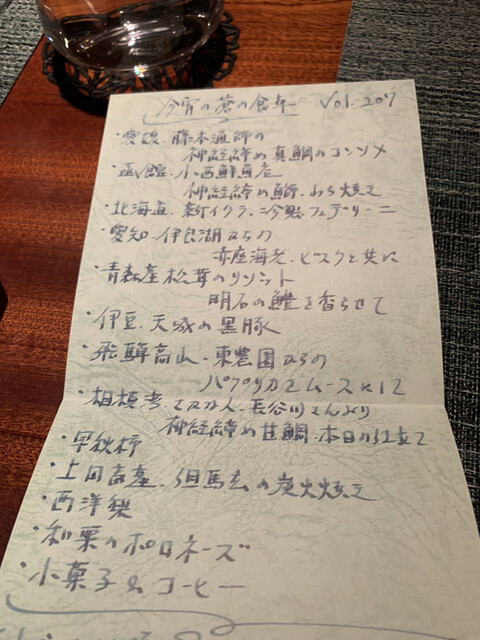 今宵の蒼の食卓 Vol.207
・愛媛、藤本漁師の
神経締め真鯛のコンソメ
・函館、小西鮮魚店
神経締め鰤、わら焼きで
・北海道、新イクラ、冷製フェデリーニ
・愛知、伊良湖からの
赤座海老、ビスクと共に
・青森産松茸のリゾット
明石の鱧を香らせて
・伊豆、天城の黒豚
・飛騨高山、東農園からの
パプリカをムースに
・相模湾、長谷川さんより
神経締め甘鯛、本日の仕立て
・早秋柿
・上田畜産、但馬玄の炭火焼きで
・西洋梨
・和栗のポロネーズ
・小菓子&コーヒー